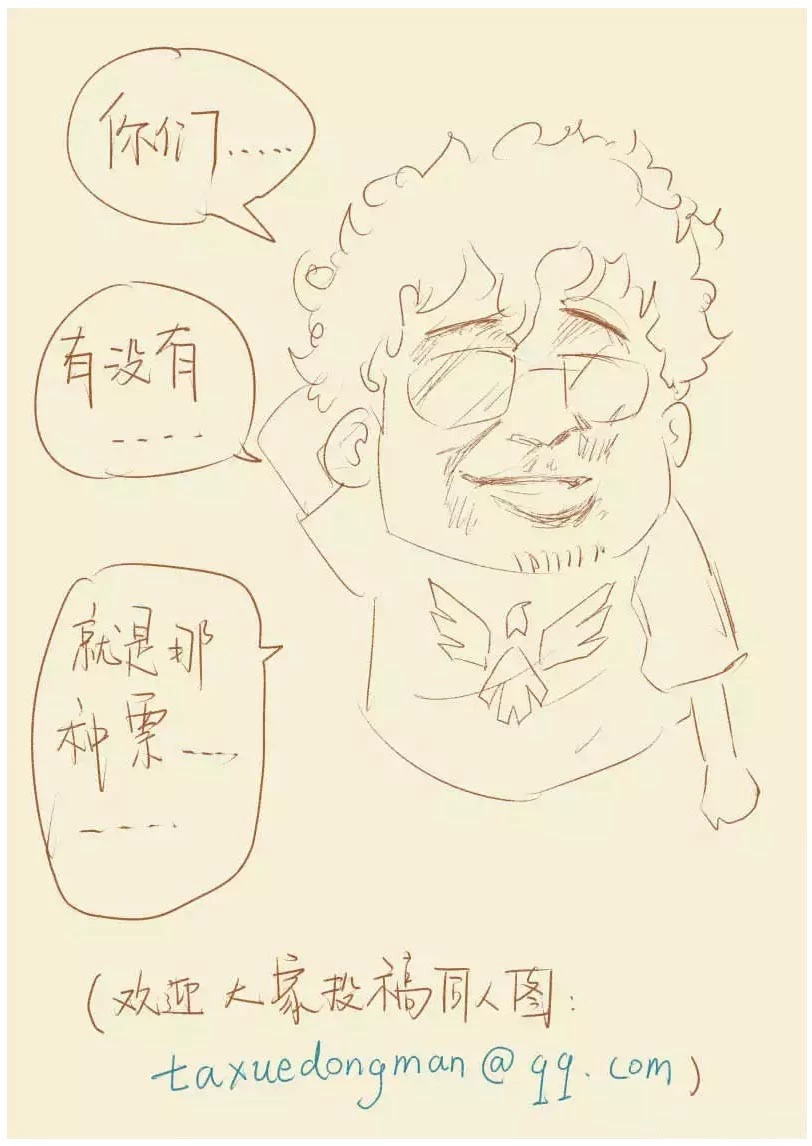 你们......
有没有
----
就是那
种票----
-----
(欢迎大家投稿同人图:
taxuedongman@qq.com)